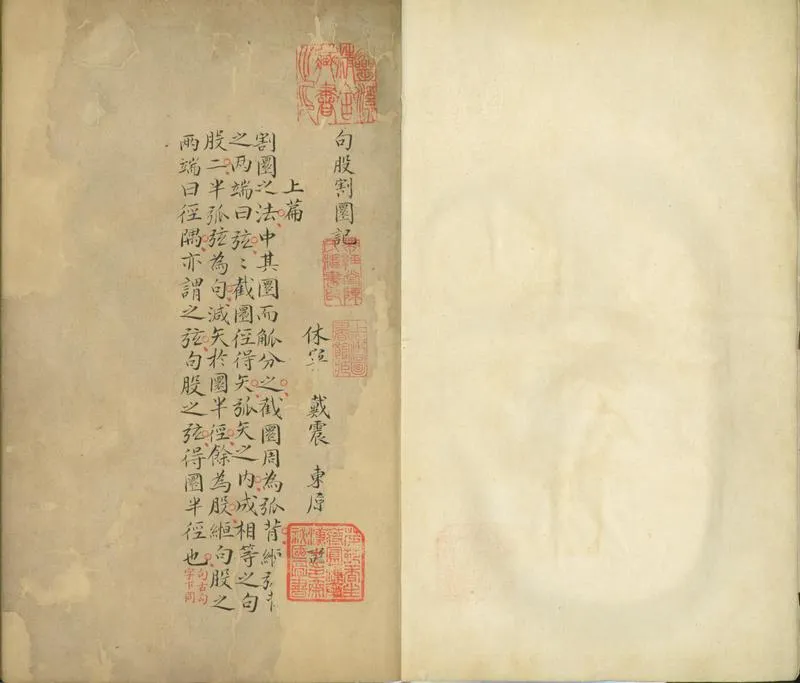 句股割圜記
休寧 戴震 東原
上篇
割圜之法中其圜而觚分之截圜周為弧背縆弧
之两端曰弦〻截圜徑得矢弧矢之内成相等之句
股二半弧弦為句減矢於圜半徑餘為股縆句股之
兩端曰徑隅亦謂之弦句股之弦得圜半徑也
句古勾
字下同